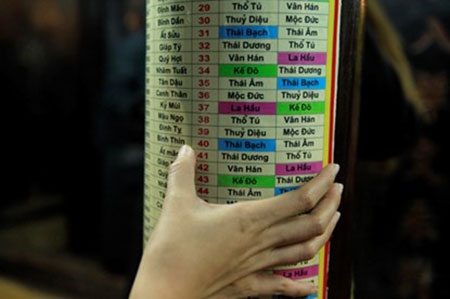 Đinh Mão 29 Thổ Tú Vân Hán
Bính Dần 30 Thuỷ Diệu Mộc Đức
Ất Sửu 31 Thái Bạch Thái Âm
Giáp Tý 32 Thái Dương Thổ Tú
Quý Hợi 33 Vân Hán La Hầu
Nhâm Tuất 34 Kế Đô Thái Dương
Tân Dậu 35 Thái Âm Thái Bạch
Canh Thân 36 Mộc Đức Thuỷ Diệu
Kỷ Mùi 37 La Hầu Kế Đô
Mậu Ngọ 38 Thổ Tú Vân Hán
Đinh Tỵ 39 Thuỷ Diệu Mộc Đức
Bính Thìn 40 Thái Bạch Thái Âm
Ất mão 41 Thái Dương Thổ Tú
Giáp 42 Vân Hán La Hầu
Quý 43 Kế Đô Thái Dương
44 Thái Âm